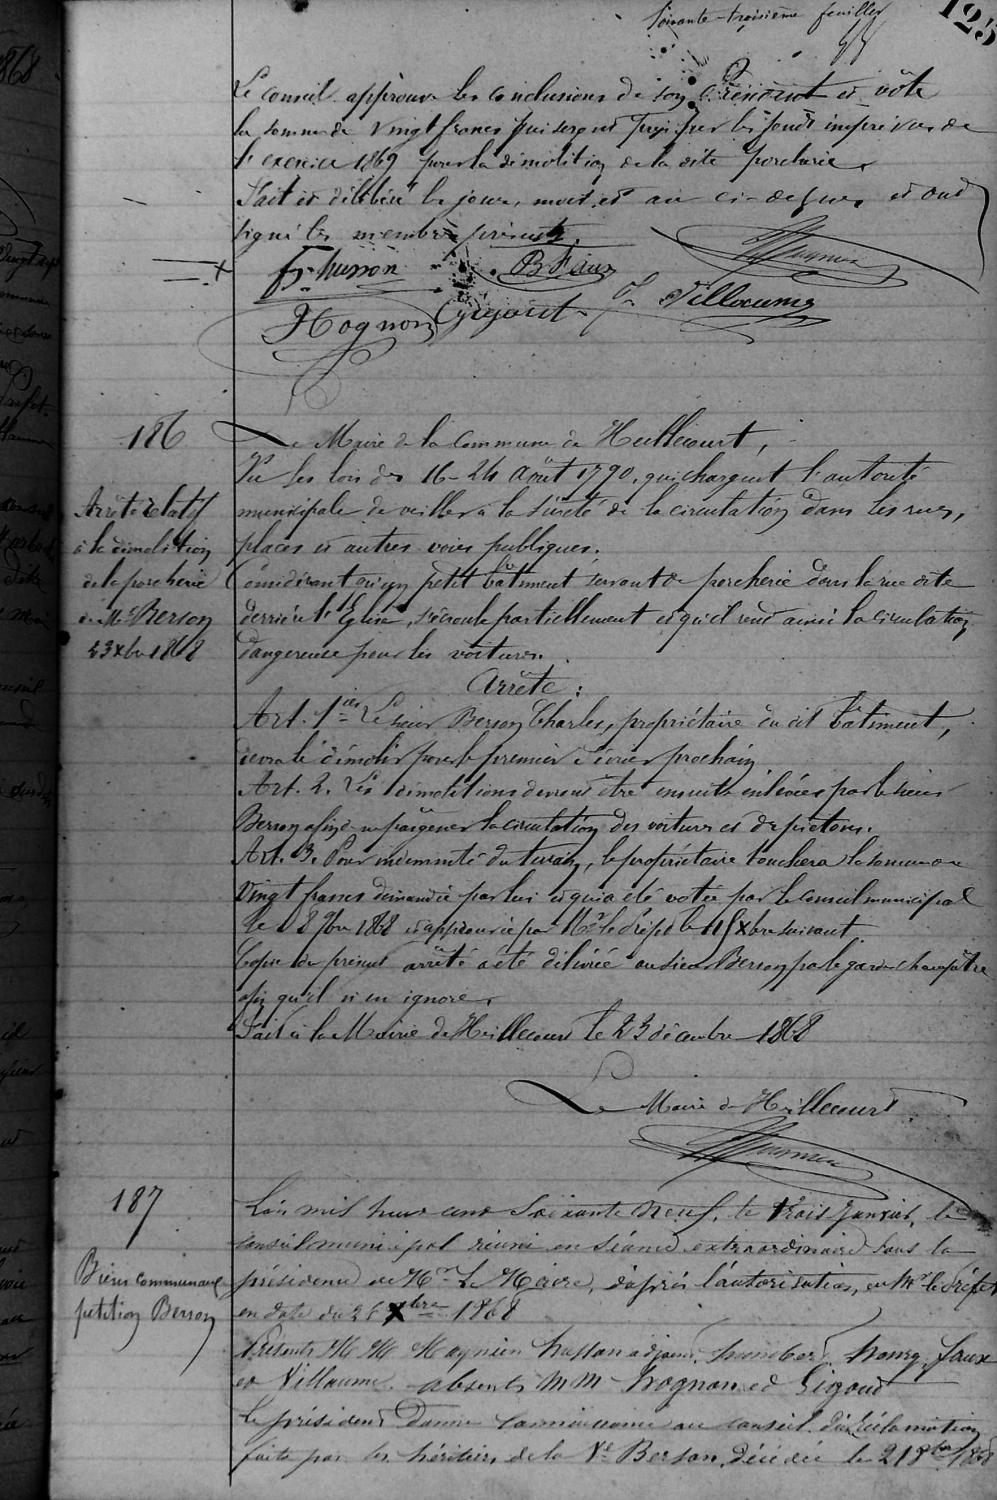 Soixante-troisième feuillet
125
Le conseil approuve les conclusions de son Président et vote
la somme de vingt francs qui seront pris sur les fonds imprévus de
l'exercice 1869 pour la démolition de la dite porcherie.
Fait et délibéré les jour, mois et an ci-dessus et ont
signé les membres présents.
Fs husson B Faux
Hognon Gigout Villaume
186
Arrêté relatif
à la démolition
de la porcherie
de Mr Berson
23 Xbre 1868
Le Maire de la commune de Heillecourt,
Vu les lois des 16-24 Août 1790, qui chargent l'autorité
municipale de veiller à la sûreté de la circulation dans les rues,
places et autres voies publiques.
Considérant qu'un petit bâtiment servant de porcherie dans la rue dite
derrière l'Eglise, s'écroule partiellement et qu'il rend ainsi la circulation
dangereuse pour les voitures.
Arrête :
Art. 1er Le sieur Berson Charles, propriétaire du dit bâtiment,
devra le démolir pour le premier février prochain
Art. 2. Les démolitions devront être ensuite enlevées par le sieur
Berson afin de ne pas gêner la circulation des voitures et des piétons.
Art. 3. Pour indemnité du terrain, le propriétaire touchera la somme de
Vingt francs demandée par lui et qui a été votée par le Conseil municipal
le 8bre 1868 et approuvée par Mr le Préfet le 15 Xbre suivant.
Copie du présent arrêté a été délivrée au sieur Berson par le garde champêtre
afin qu'il n'en ignore.
Fait à la Mairie de Heillecourt le 23 décembre 1868
Le Maire de Heillecourt
187
Biens communaux
pétition Berson
L'an mil huit cent soixante neuf, le trois Janvier, le
conseil municipal réuni en séance extraordinaire sous la
présidence de Mr Le Maire, d'après l'autorisation, de Mr le Préfet
en date du 26 Xbre 1868
Présents M M Magnien husson adjoint, humbert, hong, faux
et Villaume. absents M M hognon et Gigout
Le président donne connaissance au conseil d'une réclamation
faite par les héritiers de la Ve Berson, décédée le 21 8bre 1868